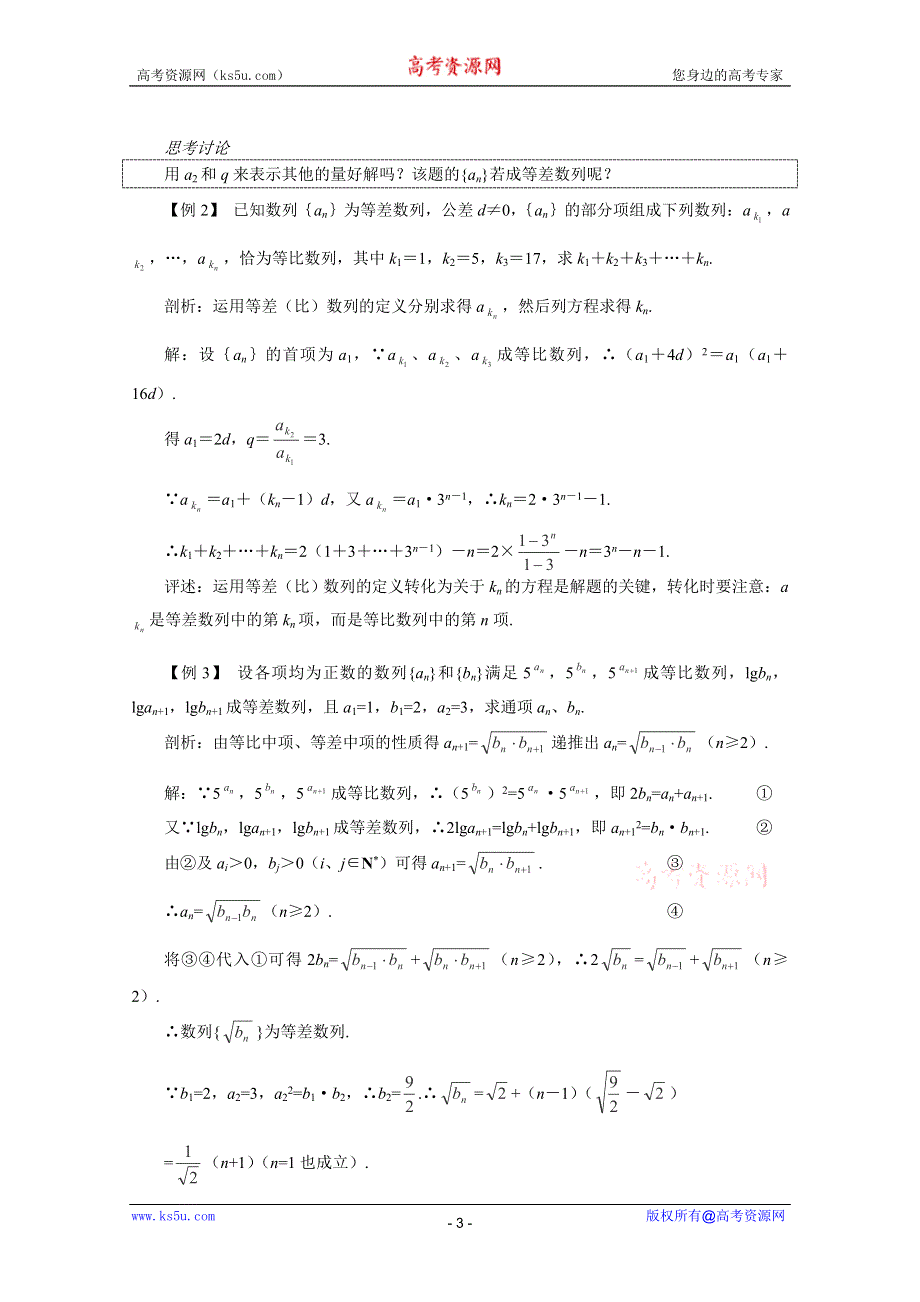 高考资源网(ks5u.com) 高考资源网 您身边的高考专家
思考讨论
用 a₂和 q 来表示其他的量好解吗？该题的{aₙ}若成等差数列呢？
【例 2】 已知数列｛aₙ｝为等差数列，公差 d≠0，｛aₙ｝的部分项组成下列数列：a_{k₁}，a
_{k₂}，…，a_{kₙ}，恰为等比数列，其中 k₁＝1，k₂＝5，k₃＝17，求 k₁＋k₂＋k₃＋…＋kₙ.
剖析：运用等差（比）数列的定义分别求得 a_{kₙ}，然后列方程求得 kₙ.
解：设｛aₙ｝的首项为 a₁，∵a_{k₁}、a_{k₂}、a_{k₃}成等比数列，∴（a₁＋4d）²＝a₁（a₁＋
16d）.
得 a₁＝2d，q＝\frac{a_{k₂}}{a_{k₁}}＝3.
∵a_{kₙ}＝a₁＋（kₙ－1）d，又 a_{kₙ}＝a₁·3ⁿ⁻¹，∴kₙ＝2·3ⁿ⁻¹－1.
∴k₁＋k₂＋…＋kₙ＝2（1＋3＋…＋3ⁿ⁻¹）－n＝2×\frac{1－3ⁿ}{1－3}－n＝3ⁿ－n－1.
评述：运用等差（比）数列的定义转化为关于 kₙ的方程是解题的关键，转化时要注意：a
_{kₙ}是等差数列中的第 kₙ项，而是等比数列中的第 n 项.
【例 3】 设各项均为正数的数列{aₙ}和{bₙ}满足 5^{aₙ}，5^{bₙ}，5^{aₙ₊₁}成等比数列，lgbₙ，
lgaₙ₊₁，lgbₙ₊₁成等差数列，且 a₁=1，b₁=2，a₂=3，求通项 aₙ、bₙ.
剖析：由等比中项、等差中项的性质得 aₙ₊₁=\sqrt{bₙ·bₙ₊₁}递推出 aₙ=\sqrt{bₙ₋₁·bₙ}（n≥2）.
解：∵5^{aₙ}，5^{bₙ}，5^{aₙ₊₁}成等比数列，∴（5^{bₙ}）²=5^{aₙ}·5^{aₙ₊₁}，即 2bₙ=aₙ+aₙ₊₁. ①
又∵lgbₙ，lgaₙ₊₁，lgbₙ₊₁成等差数列，∴2lgaₙ₊₁=lgbₙ+lgbₙ₊₁，即 aₙ₊₁²=bₙ·bₙ₊₁. ②
由②及 aᵢ＞0，bⱼ＞0（i、j∈N*）可得 aₙ₊₁=\sqrt{bₙ·bₙ₊₁}. ③
高考资源网
∴aₙ=\sqrt{bₙ₋₁bₙ}（n≥2）. ④
将③④代入①可得 2bₙ=\sqrt{bₙ₋₁·bₙ}+\sqrt{bₙ·bₙ₊₁}（n≥2），∴2\sqrt{bₙ}=\sqrt{bₙ₋₁}+\sqrt{bₙ₊₁}（n≥
2）.
∴数列{\sqrt{bₙ}}为等差数列.
∵b₁=2，a₂=3，a₂²=b₁·b₂，∴b₂=\frac{9}{2}.∴\sqrt{bₙ}=\sqrt{2}+（n－1）(\sqrt{\frac{9}{2}}－\sqrt{2})
=\frac{1}{\sqrt{2}}（n+1）（n=1 也成立）.
www.ks5u.com - 3 - 版权所有@高考资源网